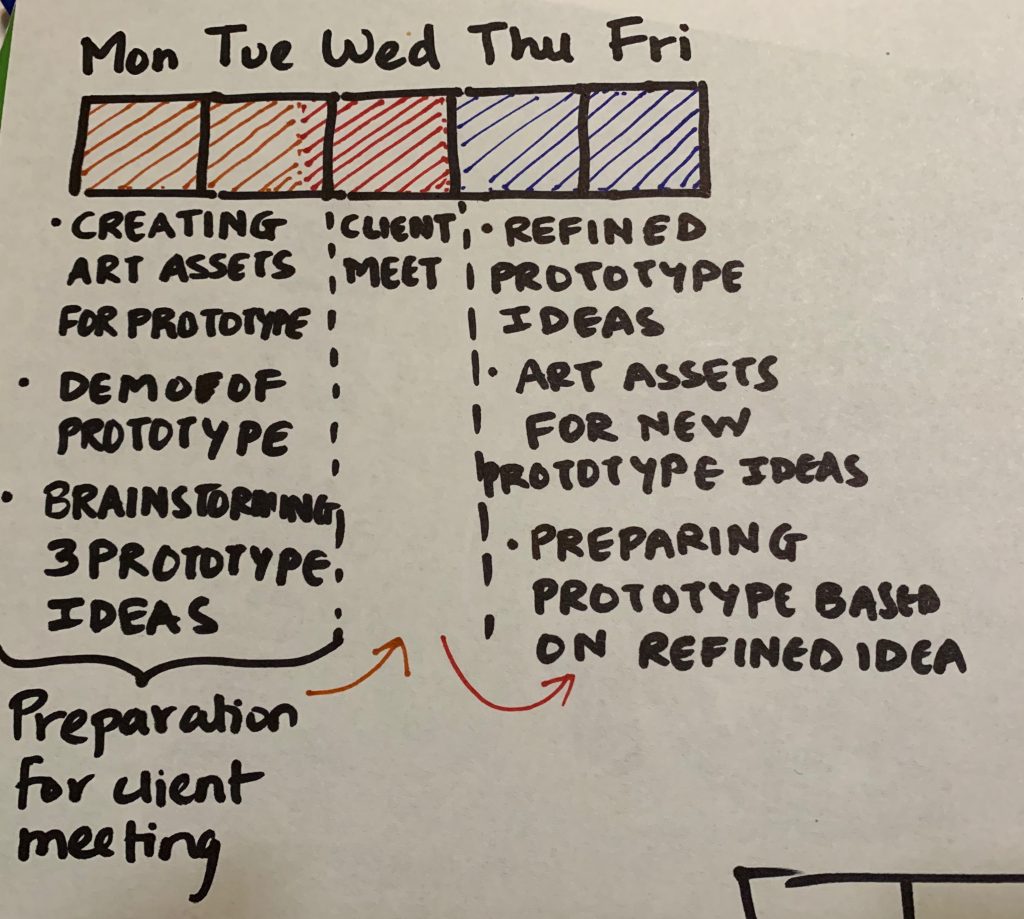 Mon Tue Wed Thu Fri
• CREATING
ART ASSETS
FOR PROTOTYPE
• DEMO OF
PROTOTYPE
• BRAINSTORMING
3 PROTOTYPE
IDEAS
Preparation
for client
meeting
CLIENT
MEET
• REFINED
PROTOTYPE
IDEAS
• ART ASSETS
FOR NEW
PROTOTYPE IDEAS
• PREPARING
PROTOTYPE BASED
ON REFINED IDEA